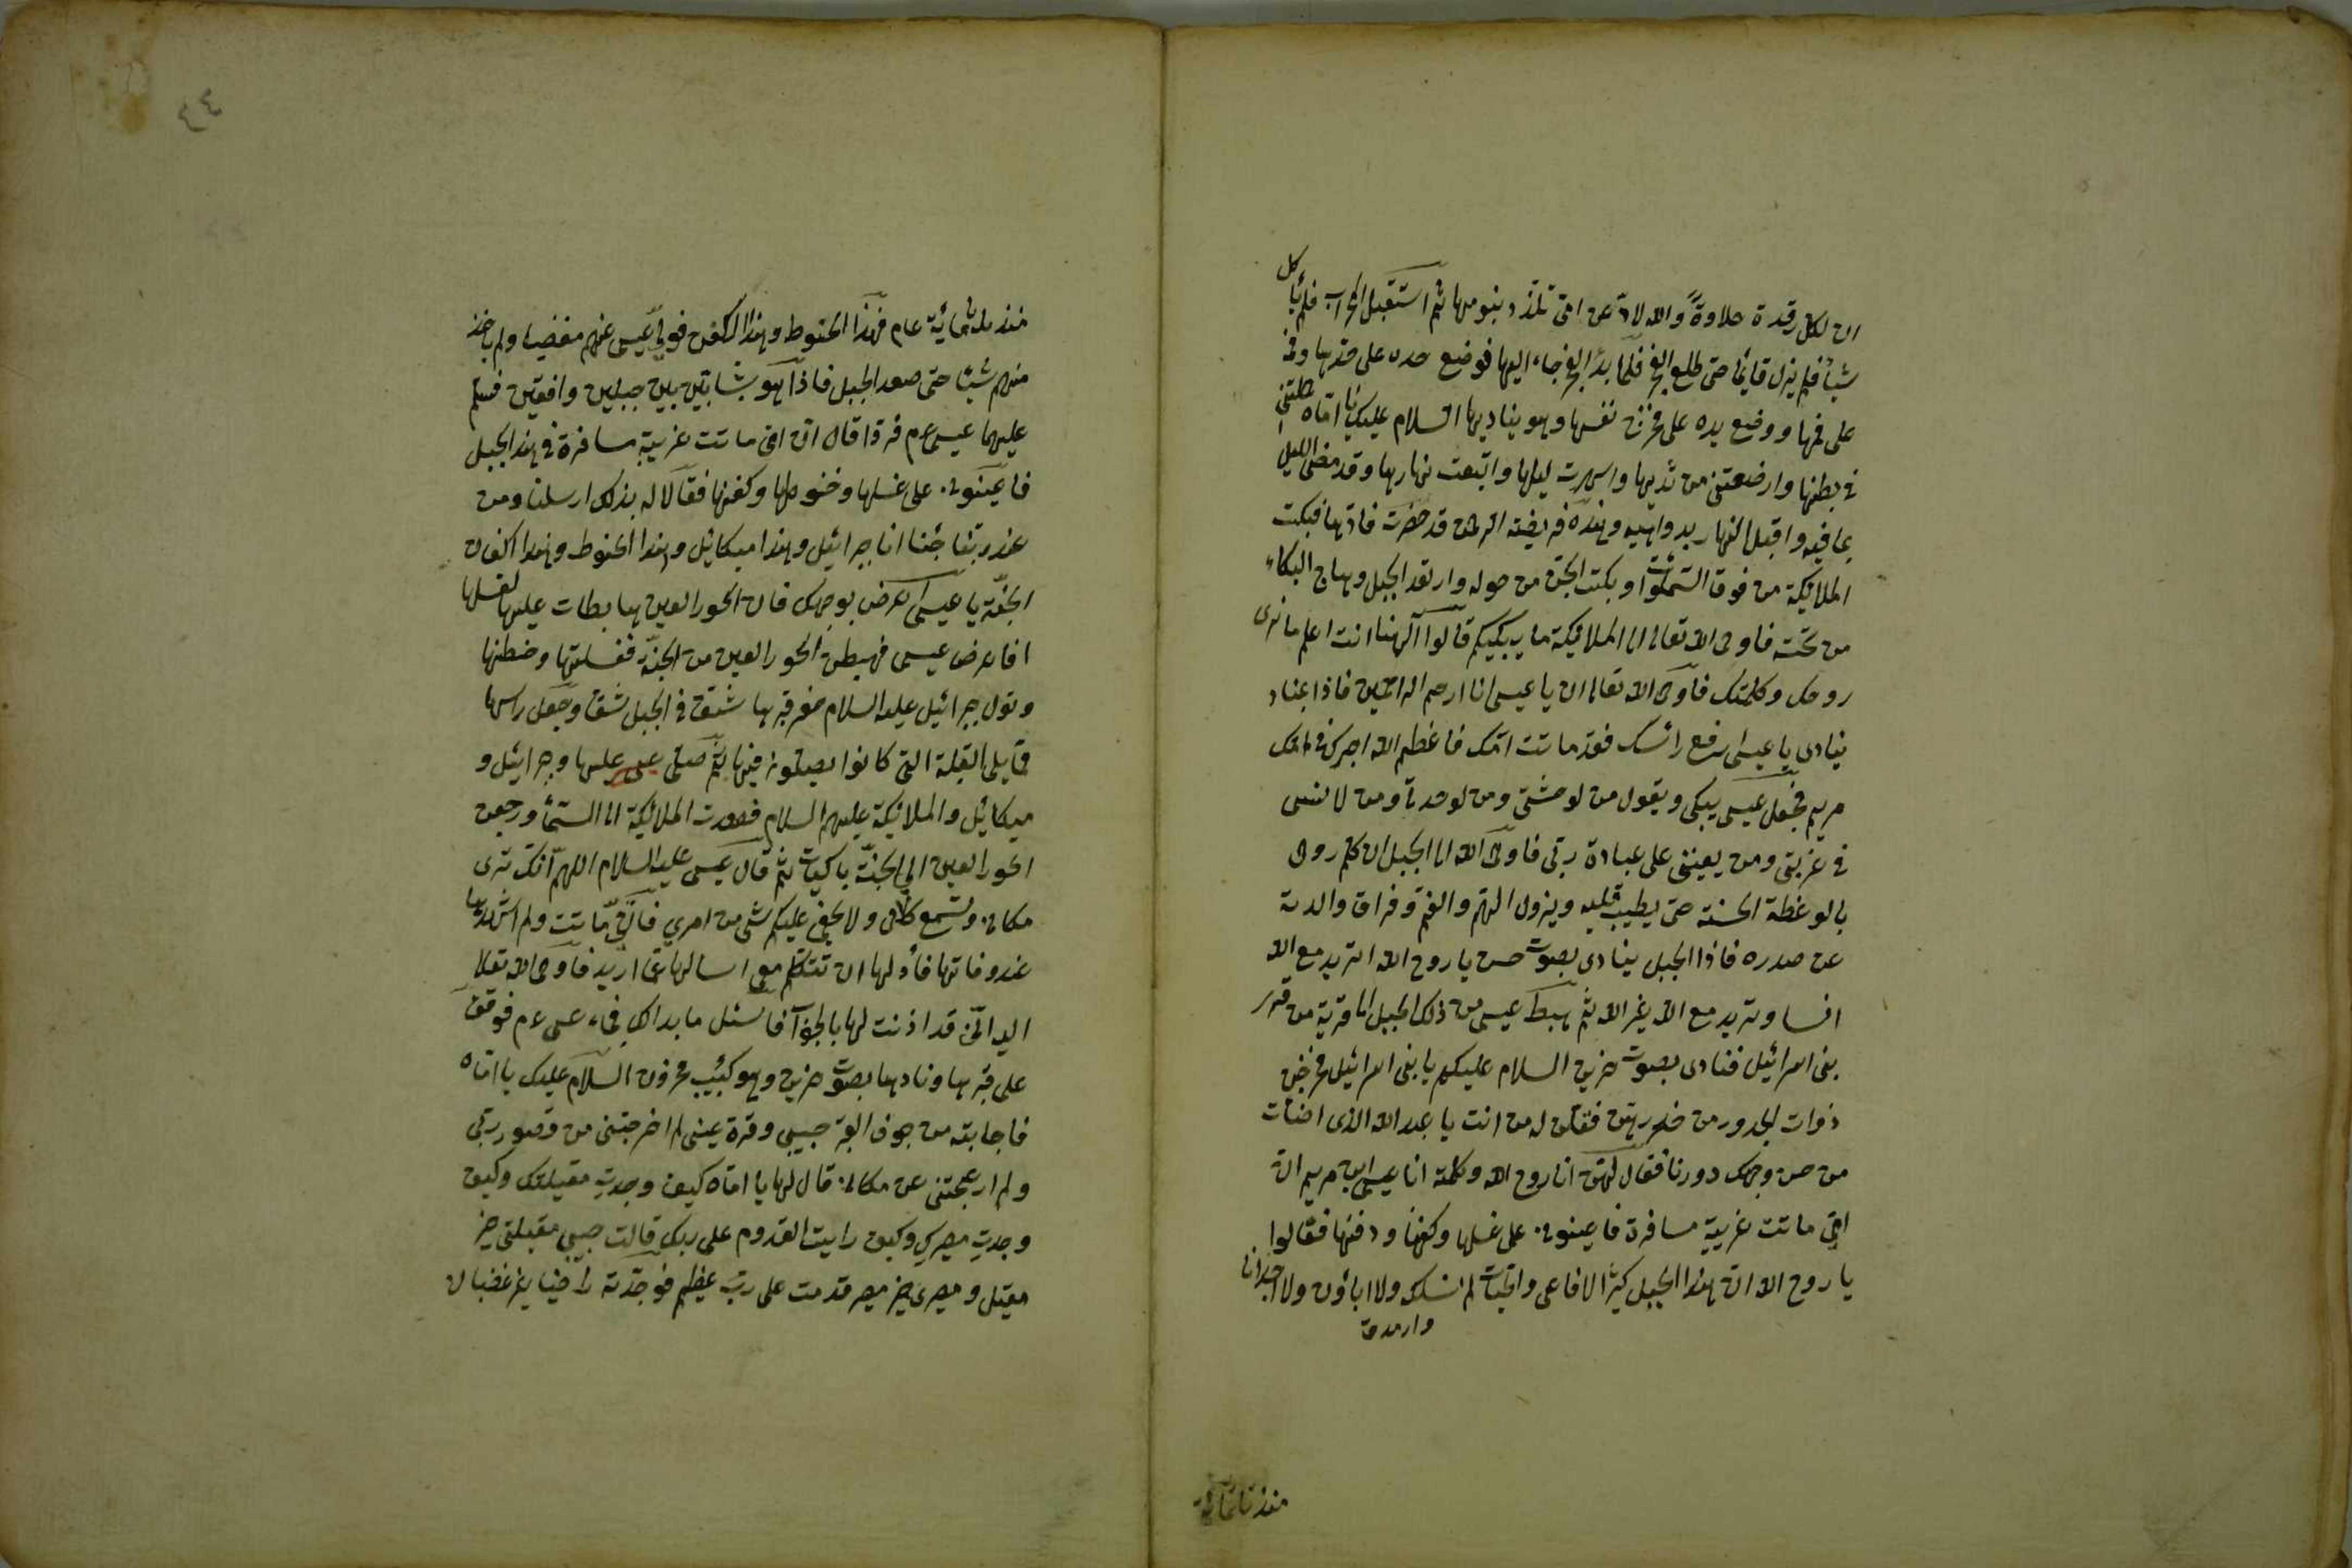 ان لكل رقدة حلاوةً والله لادّ عن امى تلذذ بنومها ثم استقبل المحراب فلم يأكل
شيأ فلم يزل قايما حتى طلع الفجر فلما بدء الفجر جاء اليها فوضع خده على خدها وفمه
على فمها ووضع يده على نفسها وهو يناديها السلام عليك يا اماه حملتنى
فى بطنها وارضعتنى من ثديها واسهرت ليلها واتبعت نهارها وقد مضى الليل
بما فيه واقبل النهار بدواهيه وهذه فريضة الرحمن قد حضرت فبكت
الملائكة من فوق السموات وبكت الجن من حوله وارتعد الجبل وهاج البكاء
من تحته فاوحى الله تعالى الى الملائكة ما يبكيكم قالوا آلهنا انت اعلم ما نرى
روحك وكلمتك فاوحى الله تعالى ان يا عيسى انا ارحم الراحمين فاذا
ينادى يا عيسى ارفع رأسك فقد ماتت امك فاعظم الله اجرك فى امك
مريم فجعل عيسى يبكى ويقول من لوحشتى ومن لوحدتى ومن لانسى
فى غربتى ومن يعيننى على عبادة ربى فاوحى الله الى الجبل ان كلم روحى
بالوعظة الحسنة حتى يطيب قلبه ويزول الهم والغم وفراق والدته
عن صدره فاذا الجبل ينادى بصوت حسن يا روح الله اتريد مع الله
انسا وتريد مع الله غير الله ثم هبط عيسى من ذلك الجبل الى قرية من قرى
بنى اسرائيل فنادى بصوت حزين السلام عليكم يا بنى اسرائيل فخرجن
ذوات الخدور من خدورهن فقلن له من انت يا عبد الله الذى اضائت
من حسن وجهك دورنا فقال لهن انا روح الله وكلمته انا عيسى ابن مريم ان
امى ماتت غريبة مسافرة فاعينونى على غسلها وكفنها ودفنها فقالوا
يا روح الله ان هذا الجبل كثير الافاعى والحيات لم نسلكه ولا اباؤن ولا اجدادنا
منذ ثلثمائة
منذ ثلثمائة عام فهذا الحنوط وهذا الكفن فولى عيسى عنهم مغضبا ولم ياخذ
منهم شيئا حتى صعد الجبل فاذا هو بشابين بين جبلين واقفين فسلم
عليهما عيسى عم فردا قال ان امى ماتت غريبة مسافرة فى هذا الجبل
فاعينونى على غسلها وحنوطها وكفنها فقالا له بذلك ارسلنا ومن
عند ربنا جئنا انا جبرائيل وهذا ميكائيل وهذا الحنوط وهذا الكفن من
الجنة يا عيسى اعرض بوجهك فان الحور العين هابطات عليها لغسلها
فاعرض عيسى فهبطن الحور العين من الجنة فغسلتها وحنطنها
وتولى جبرائيل عليه السلام حفر قبرها شق فى الجبل شق وجعل راسها
قابلى القبلة التى كانوا يصلون فيها ثم صلى عيسى عليها وجبرائيل و
ميكائيل والملائكة عليهم السلام فصعدت الملائكة الى السماء ورجعن
الحور العين الى الجنة باكيات ثم قال عيسى عليه السلام اللهم انك ترى
مكانى وتسمع كلامى ولا يخفى عليكم شئ من امرى فان امى ماتت ولم اشهدها
عند وفاتها فأذن لها ان تتكلم معى اسالها عما اريد فاوحى الله تعالى
اليه انى قد اذنت لها بالجواب فاسئل ما بدا لك فجاء عيسى عم فوقف
على قبرها ونادها بصوت حزين وهو كئيب محزون السلام عليك يا اماه
فاجابته من جوف القبر حبيبى وقرة عينى لم اخرجتنى من قصور ربى
ولم ازعجتنى عن مكانى قال لها يا اماه كيف وجدت مقيلك وكيف
وجدت مصيرك وكيف رايت القدوم على ربك قالت حبيبى مقيلى خير
مقيل ومصيرى خير مصير قدمت على رب عظيم فوجدته راضيا غير غضبان
٤٤